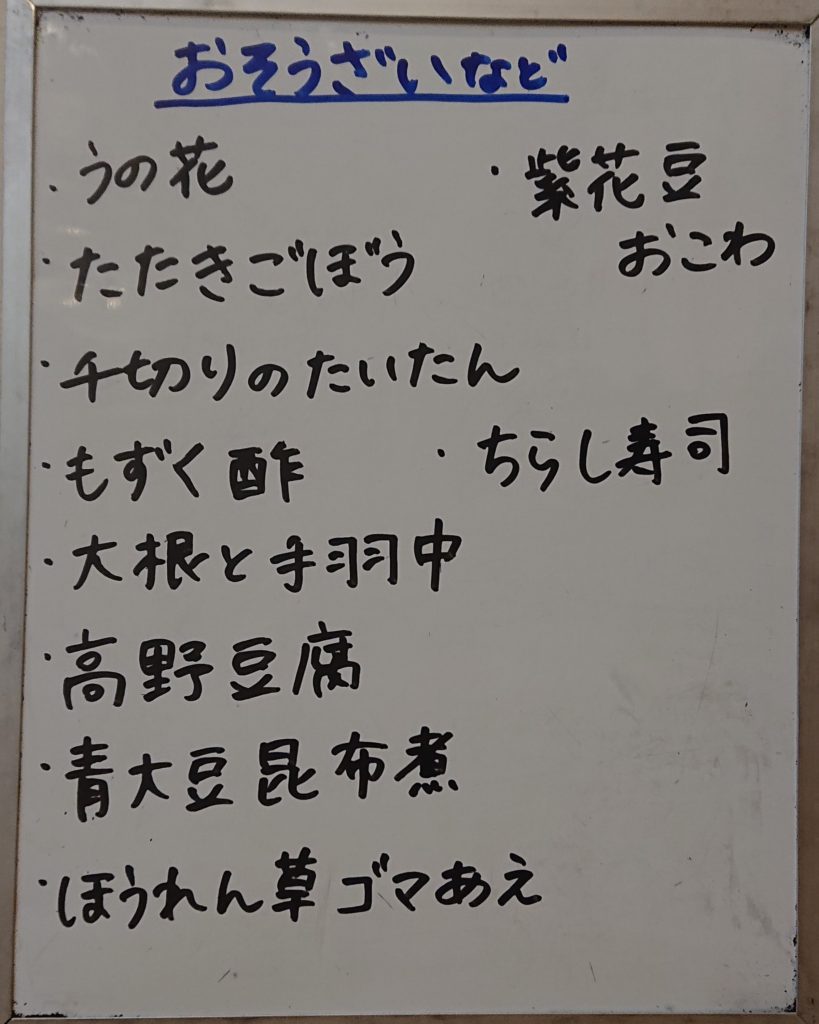 おそうざいなど
・うの花
・たたきごぼう
・千切りのたいたん
・もずく酢
・大根と手羽中
・高野豆腐
・青大豆昆布煮
・ほうれん草ゴマあえ
・紫花豆
おこわ
・ちらし寿司